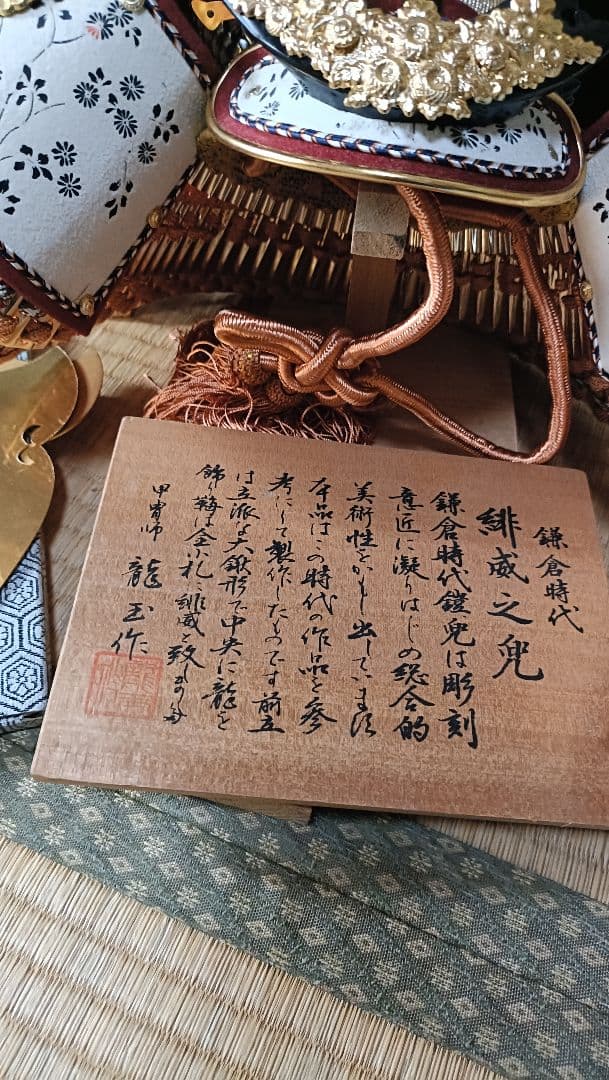 鎌倉時代
緋威之兜
鎌倉時代鎧兜は彫刻
意匠に凝りはじめ総合的
美術性をかもし出しています
本品はこの時代の作品を参
考にして製作したものです前立
は立派な大鍬形で中央に龍を
飾り鞠は金小札、緋威と致しました
甲冑師 龍玉作